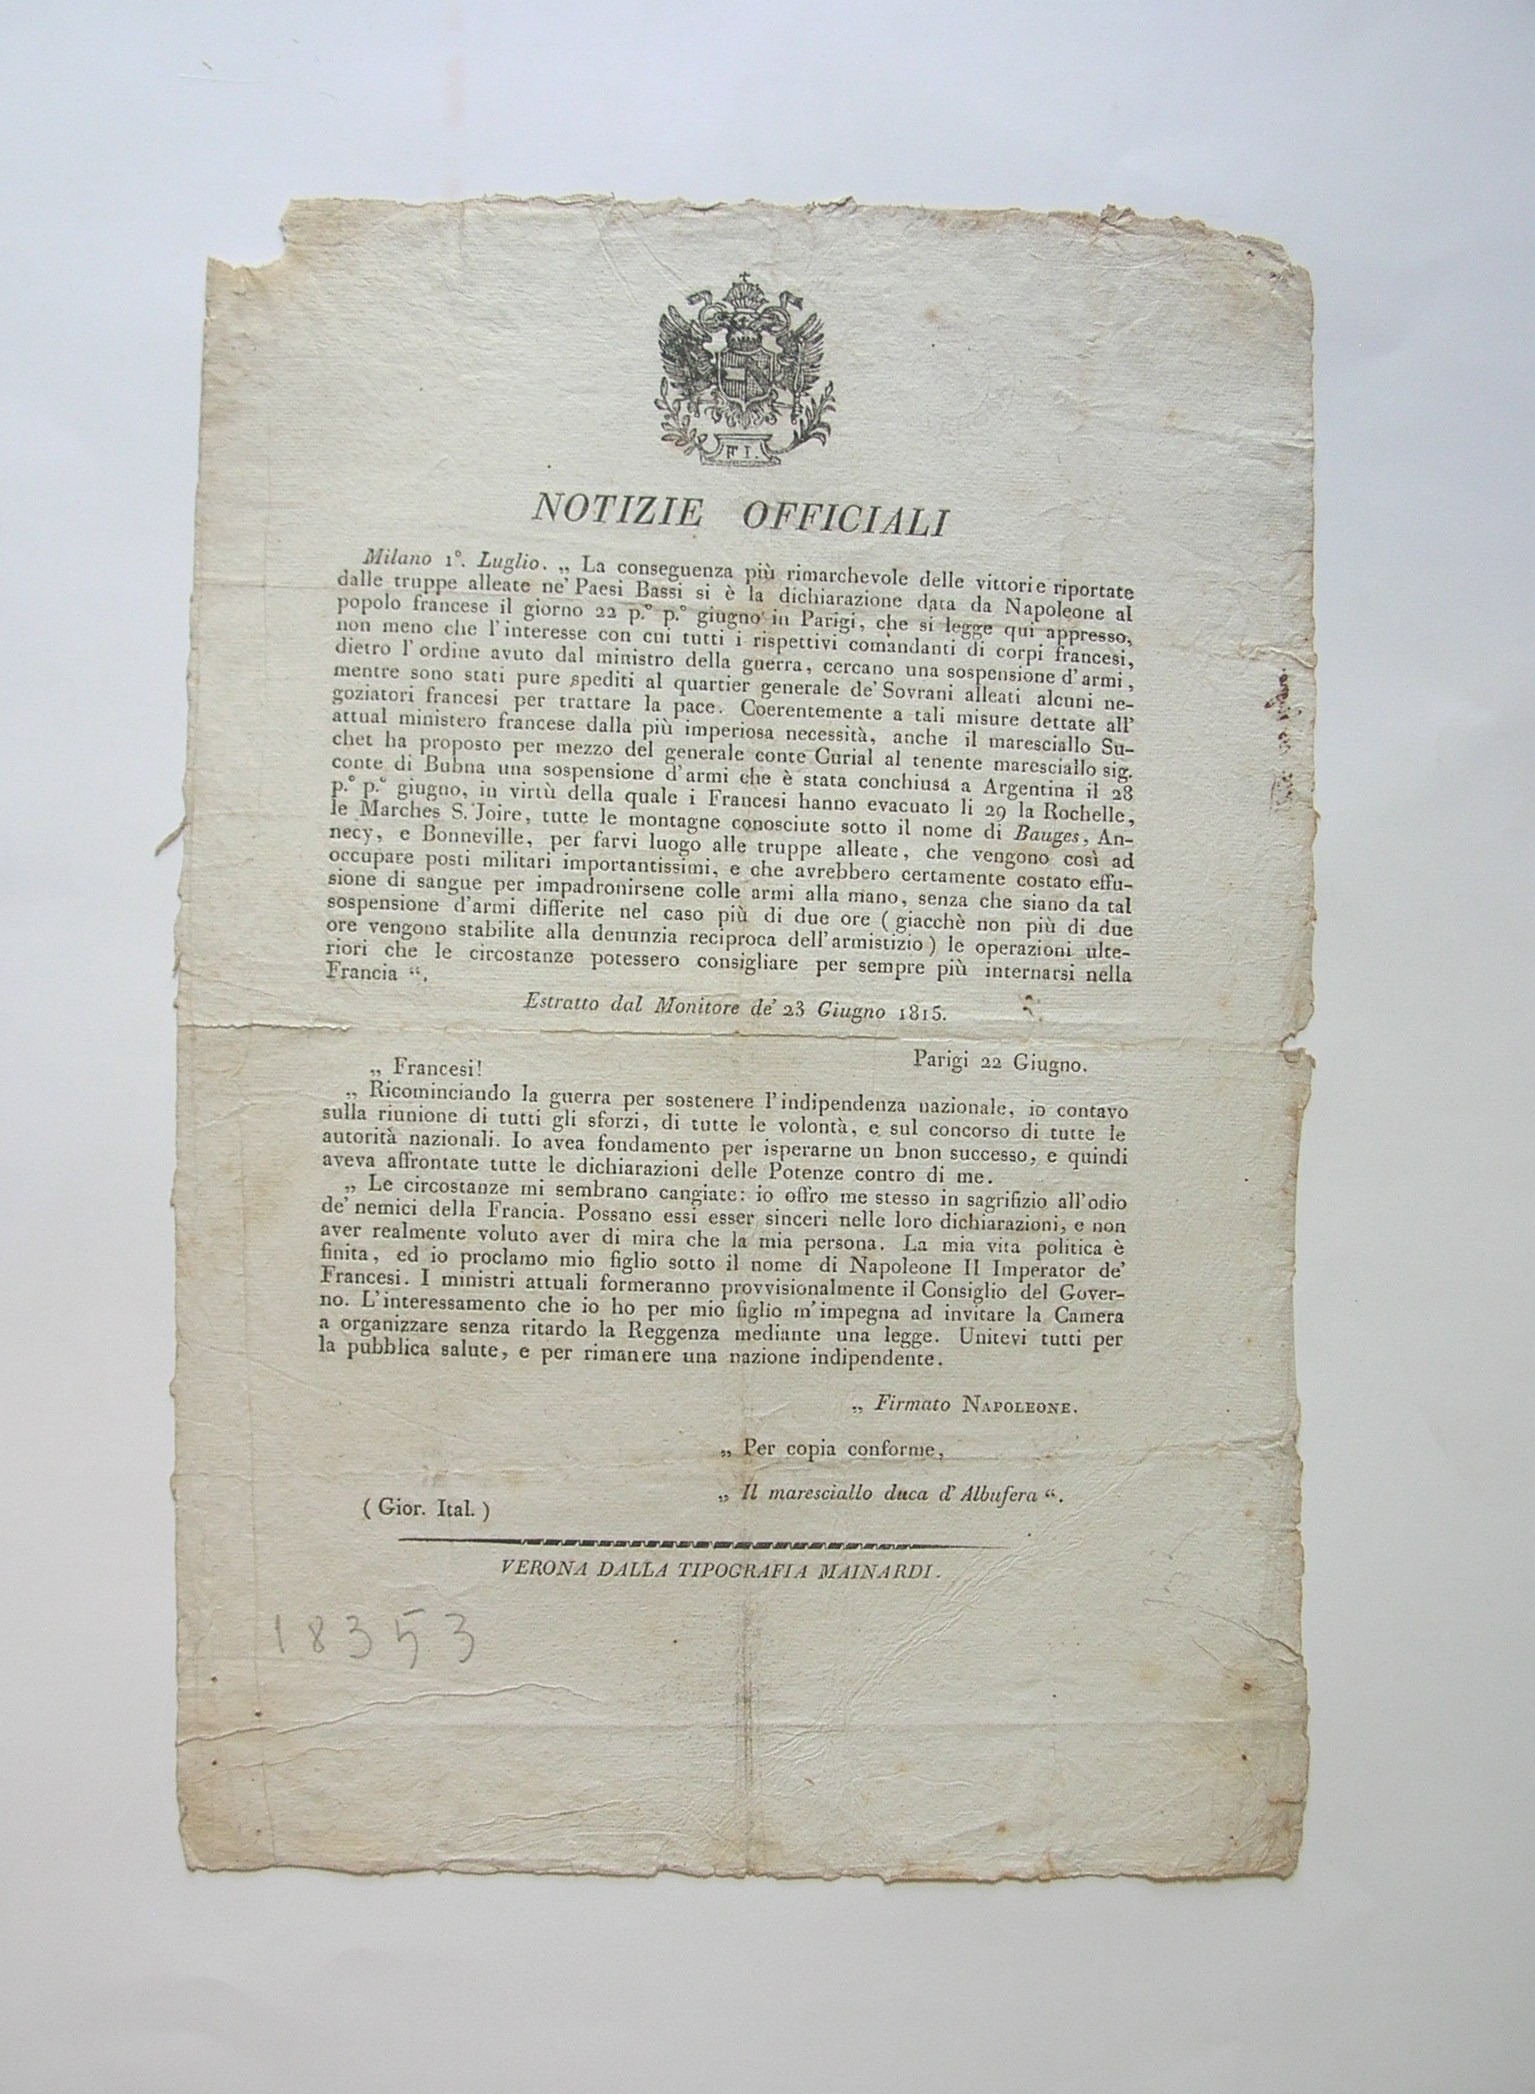 F I.
NOTIZIE OFFICIALI
Milano 1°. Luglio. „ La conseguenza più rimarchevole delle vittorie riportate
dalle truppe alleate ne' Paesi Bassi si è la dichiarazione data da Napoleone al
popolo francese il giorno 22 p.° p.° giugno in Parigi, che si legge qui appresso,
non meno che l'interesse con cui tutti i rispettivi comandanti di corpi francesi,
dietro l'ordine avuto dal ministro della guerra, cercano una sospensione d'armi,
mentre sono stati pure spediti al quartier generale de' Sovrani alleati alcuni ne-
goziatori francesi per trattare la pace. Coerentemente a tali misure dettate all'
attual ministero francese dalla più imperiosa necessità, anche il maresciallo Su-
chet ha proposto per mezzo del generale conte Curial al tenente maresciallo sig.
conte di Bubna una sospensione d'armi che è stata conchiusa a Argentina il 28
p.° p.° giugno, in virtù della quale i Francesi hanno evacuato li 29 la Rochelle,
le Marches S. Joire, tutte le montagne conosciute sotto il nome di Bauges, An-
necy, e Bonneville, per farvi luogo alle truppe alleate, che vengono così ad
occupare posti militari importantissimi, e che avrebbero certamente costato effu-
sione di sangue per impadronirsene colle armi alla mano, senza che siano da tal
sospensione d'armi differite nel caso più di due ore ( giacchè non più di due
ore vengono stabilite alla denunzia reciproca dell'armistizio ) le operazioni ulte-
riori che le circostanze potessero consigliare per sempre più internarsi nella
Francia “.
Estratto dal Monitore de' 23 Giugno 1815.
Parigi 22 Giugno.
„ Francesi!
„ Ricominciando la guerra per sostenere l'indipendenza nazionale, io contavo
sulla riunione di tutti gli sforzi, di tutte le volontà, e sul concorso di tutte le
autorità nazionali. Io avea fondamento per isperarne un bnon successo, e quindi
aveva affrontate tutte le dichiarazioni delle Potenze contro di me.
„ Le circostanze mi sembrano cangiate: io offro me stesso in sagrifizio all'odio
de' nemici della Francia. Possano essi esser sinceri nelle loro dichiarazioni, e non
aver realmente voluto aver di mira che la mia persona. La mia vita politica è
finita, ed io proclamo mio figlio sotto il nome di Napoleone II Imperator de'
Francesi. I ministri attuali formeranno provvisionalmente il Consiglio del Gover-
no. L'interessamento che io ho per mio figlio m'impegna ad invitare la Camera
a organizzare senza ritardo la Reggenza mediante una legge. Unitevi tutti per
la pubblica salute, e per rimanere una nazione indipendente.
„ Firmato NAPOLEONE.
„ Per copia conforme,
„ Il maresciallo duca d'Albufera “.
( Gior. Ital. )
VERONA DALLA TIPOGRAFIA MAINARDI.
18353